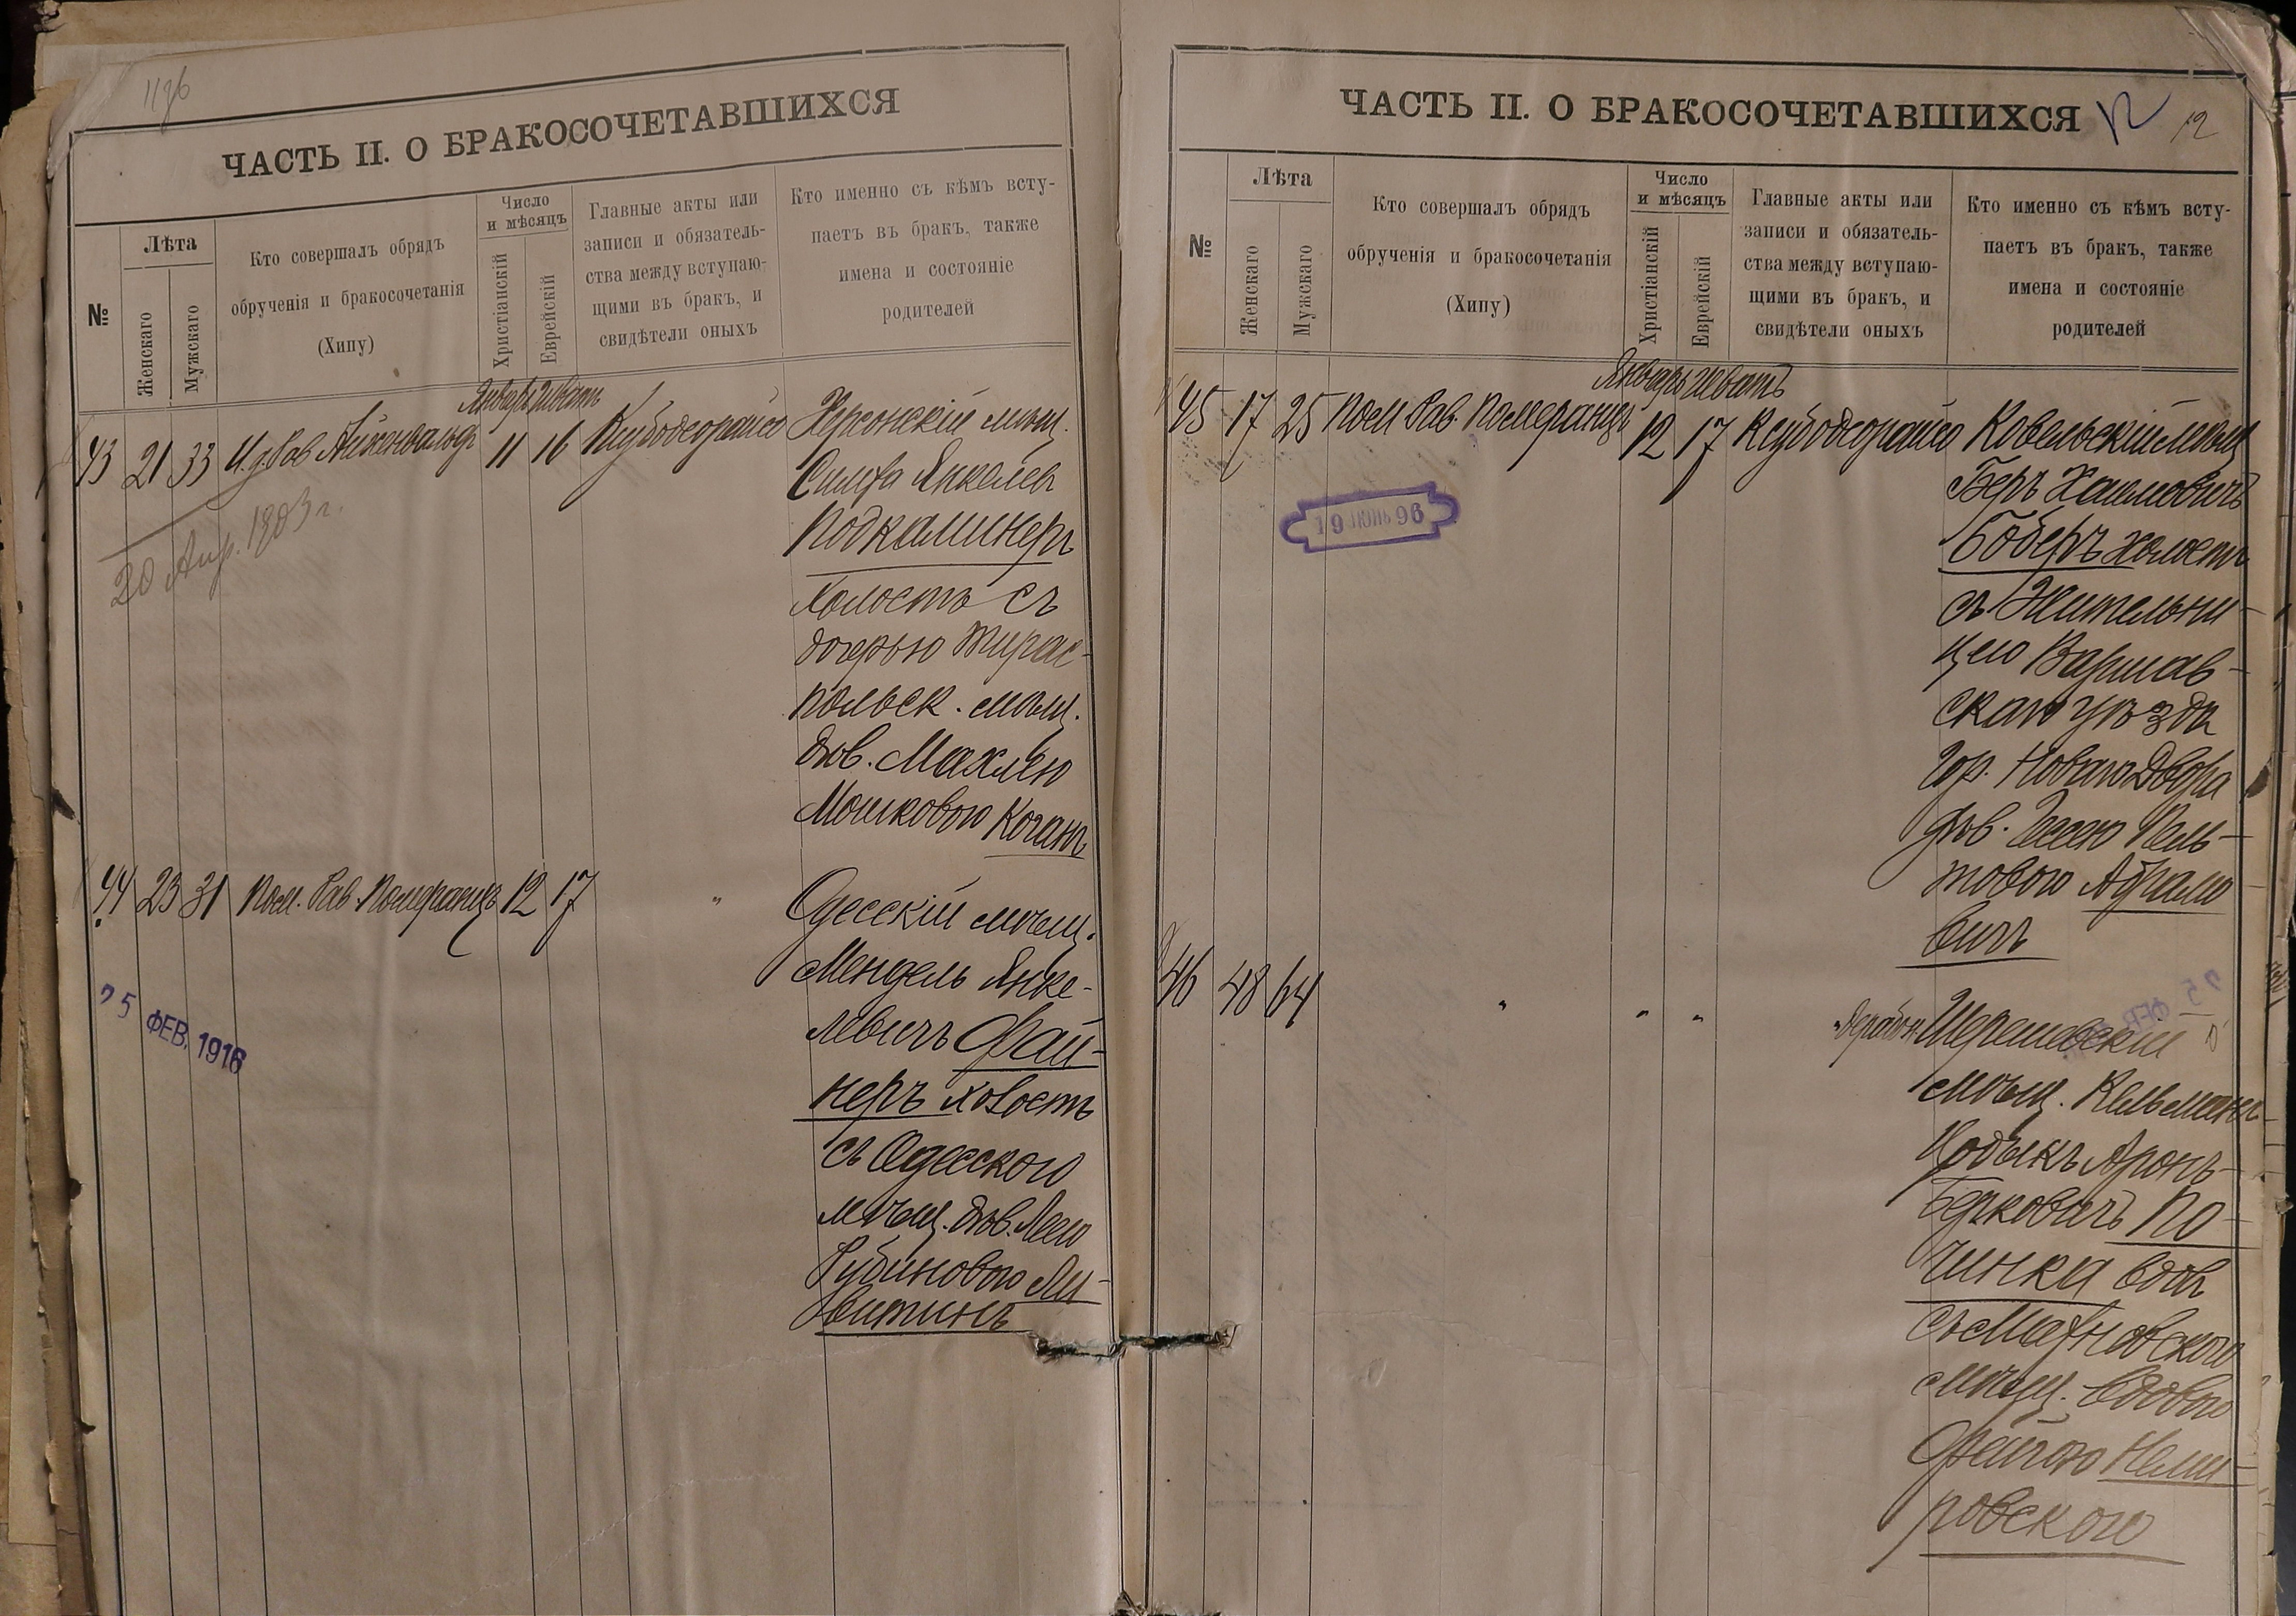 1196
ЧАСТЬ II. О БРАКОСОЧЕТАВШИХСЯ
№
Лѣта
Женскаго
Мужскаго
Кто совершалъ обрядъ
обрученія и бракосочетанія
(Хипу)
Число
и мѣсяцъ
Христіанскій
Еврейскій
Главные акты или
записи и обязатель-
ства между вступаю-
щими въ бракъ, и
свидѣтели оныхъ
Кто именно съ кѣмъ всту-
паетъ въ бракъ, также
имена и состояніе
родителей
Январь Шватъ
43 21 33 И. д. Рав Айхенвальдъ 11 16 Ксубодеорайсо Херсонскій мѣщ.
Янкелев
Подкаминеръ
холостъ съ
дочерью Тирас-
польск. мѣщ.
дѣв. Махлею
Мошковою Коганъ
20 Апр. 1903 г.
44 23 31 Пом. Рав. Померанцъ 12 17 " Одесскій мѣщ.
Мендель Янке-
левичъ Фай-
неръ холостъ
съ Одесскою
мѣщ. дѣв. Леею
Рубиновою Ли-
витинъ
25 ФЕВ. 1916
ЧАСТЬ II. О БРАКОСОЧЕТАВШИХСЯ
12
12
№
Лѣта
Женскаго
Мужскаго
Кто совершалъ обрядъ
обрученія и бракосочетанія
(Хипу)
Число
и мѣсяцъ
Христіанскій
Еврейскій
Главные акты или
записи и обязатель-
ства между вступаю-
щими въ бракъ, и
свидѣтели оныхъ
Кто именно съ кѣмъ всту-
паетъ въ бракъ, также
имена и состояніе
родителей
Январь Шватъ
45 17 25 Пом Рав. Померанцъ 12 17 Ксубодеорайсо Ковельскій мѣщ
Беръ Хаимовичъ
Боберъ холостъ
съ Жительни-
цею Варшав-
скаго уѣзда
гор. Новаго Двора
дѣв. Гессею
товою Абрамо
вичъ
19 ИЮНЬ 96
46 48 64 " " " Шерешевскій
мѣщ. Кельманъ
Цодыкъ Аронъ-
Берковичъ По-
чинка вдов
съ Махновскою
мѣщ. вдовою
Фейгою Неми-
ровскою